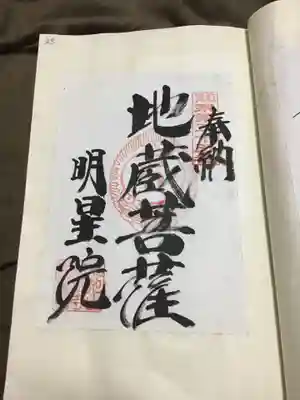 奉納
地蔵菩薩
明星院